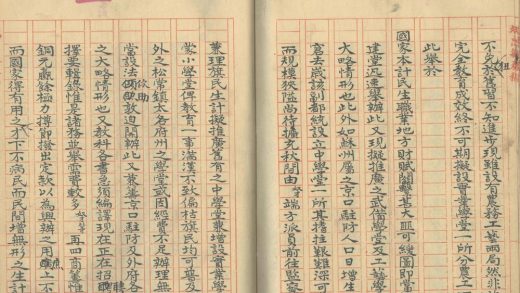 不免狃於舊習不知進步現雖設有農務工藝兩局然非
完全教育成效終不可期擬設實業學堂一所分農工
此舉於
國家本計民生職業地方財賦關繫甚大匪可緩圖即當
建堂迅速舉辦此又現擬推廣之武備學堂及工藝學
大略情形也此外如蘇州屬之京口駐防人口日增生
倉去歲該副都統設立中學堂一所其撐拄艱難深可
而規模狹隘尚待擴充秋間由督臣端方派員前往監察
兼理旗民生計擬推廣舊有之中學堂兼增設實業學
蒙小學堂俾教育一事滿漢不致偏枯旗民均可霑及
外之松常鎮太各府州之學堂或因經費不足辦理無
當設法佽助敦迫開辦此又兼籌京口駐防及外府各
之大略情形也又教科各書急須編譯現正在招聘
擇要輯錄惟是諸務並舉需費較多督臣再四商籌惟
銅元贏餘極力撙節撥出定款以為興辦之用庶上不
而國家得有用之才下不病民而民間增無形之生計